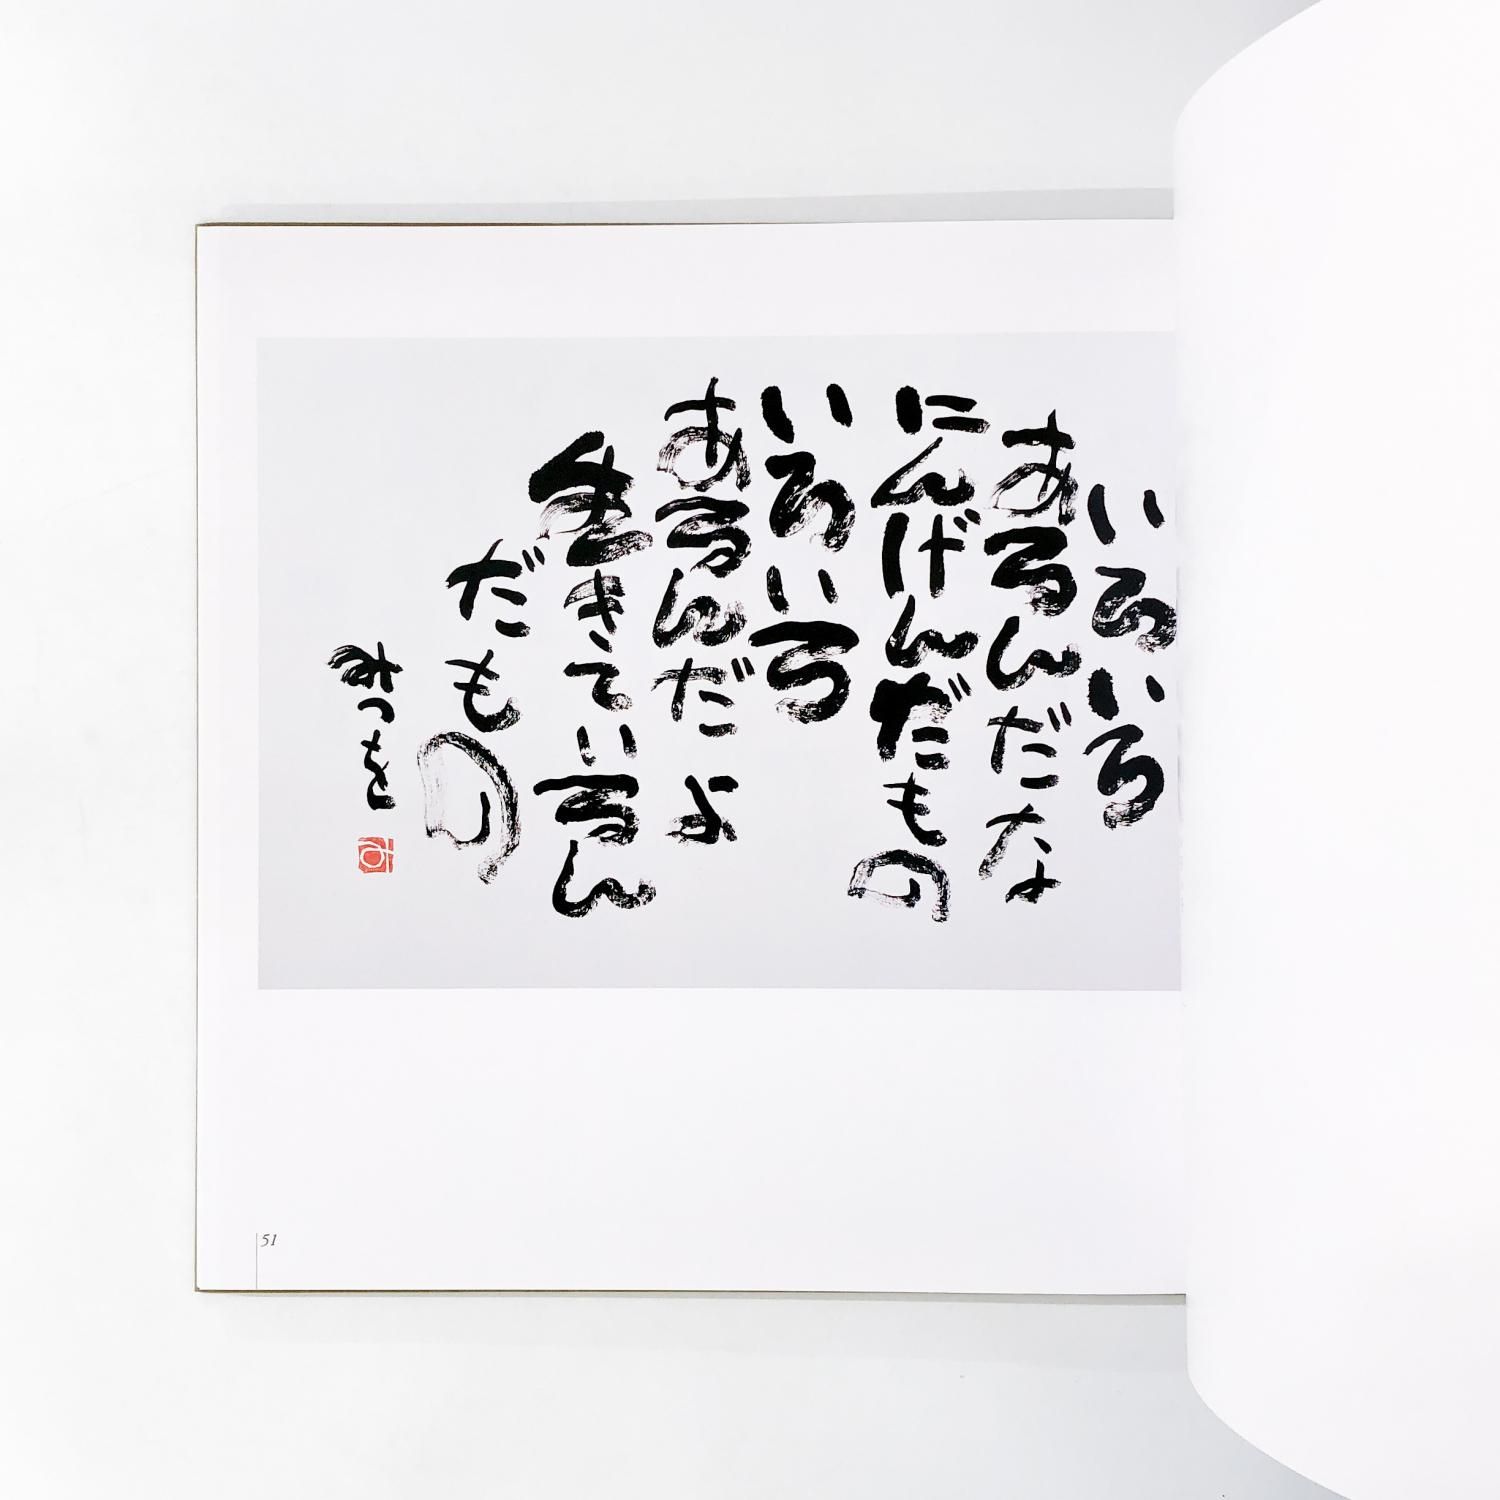 いろいろ
あるんだな
にんげんだもの
いろいろ
あるんだよ
生きているん
だもの
みつを
51